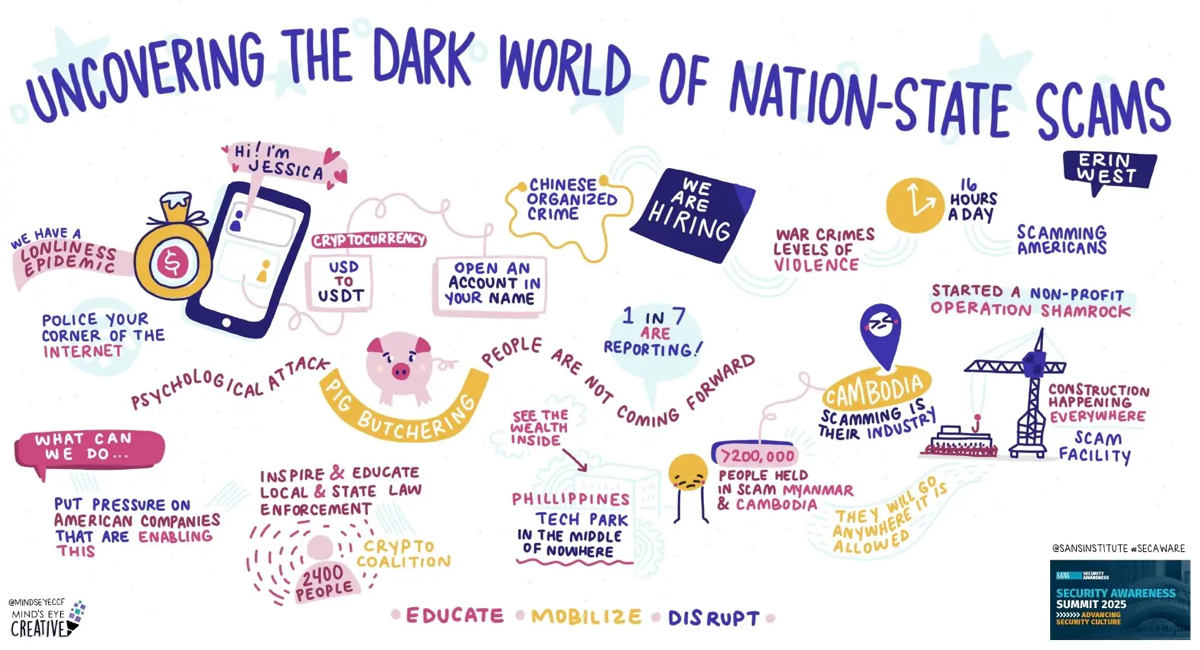 UNCOVERING THE DARK WORLD OF NATION-STATE SCAMS
ERIN
WEST
Hi! I'M
JESSICA
WE HAVE A
LONLINESS
EPIDEMIC
$
CRYPTOCURRENCY
USD
TO
USDT
OPEN AN
ACCOUNT IN
YOUR NAME
CHINESE
ORGANIZED
CRIME
WE
ARE
HIRING
WAR CRIMES
LEVELS OF
VIOLENCE
16
HOURS
A DAY
SCAMMING
AMERICANS
POLICE YOUR
CORNER OF THE
INTERNET
PSYCHOLOGICAL ATTACK
PIG BUTCHERING
PEOPLE ARE NOT COMING FORWARD
1 IN 7
ARE
REPORTING!
STARTED A NON-PROFIT
OPERATION SHAMROCK
CAMBODIA
SCAMMING IS
THEIR INDUSTRY
CONSTRUCTION
HAPPENING
EVERYWHERE
SCAM
FACILITY
WHAT CAN
WE DO...
PUT PRESSURE ON
AMERICAN COMPANIES
THAT ARE ENABLING
THIS
INSPIRE & EDUCATE
LOCAL & STATE LAW
ENFORCEMENT
CRYPTO
COALITION
2400
PEOPLE
SEE THE
WEALTH
INSIDE
PHILLIPPINES
TECH PARK
IN THE MIDDLE
OF NOWHERE
>200,000
PEOPLE HELD
IN SCAM MYANMAR
& CAMBODIA
THEY WILL GO
ANYWHERE IT IS
ALLOWED
EDUCATE • MOBILIZE • DISRUPT
@MINDSEYECCF
MIND'S EYE
CREATIVE
@SANSINSTITUTE #SECAWARE
SANS SECURITY
AWARENESS
SECURITY AWARENESS
SUMMIT 2025
>>>>>> ADVANCING
SECURITY CULTURE